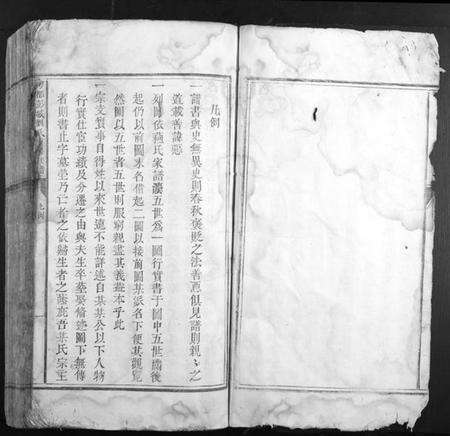 凡例
一譜書與史無異史則春秋褒貶之法善惡俱見譜則親〻之
義載善諱惡
一列圖依蘇氏家譜灋五世為一圖行實書于圖中五世備後
起仍以前圖末名借起二圖以接前圖某派名下便其觀覽
然圖以五世者五世則服窮親盡其義蓋本乎此
一宗支實事自得姓以來世遠不能詳述自某某公以下人物
行實仕宦功績及分遷之由與夫生卒葬娶備迹圖下無傳
者則書止字墓塋乃亡者之依歸生者之蔭庇吾某氏宗主